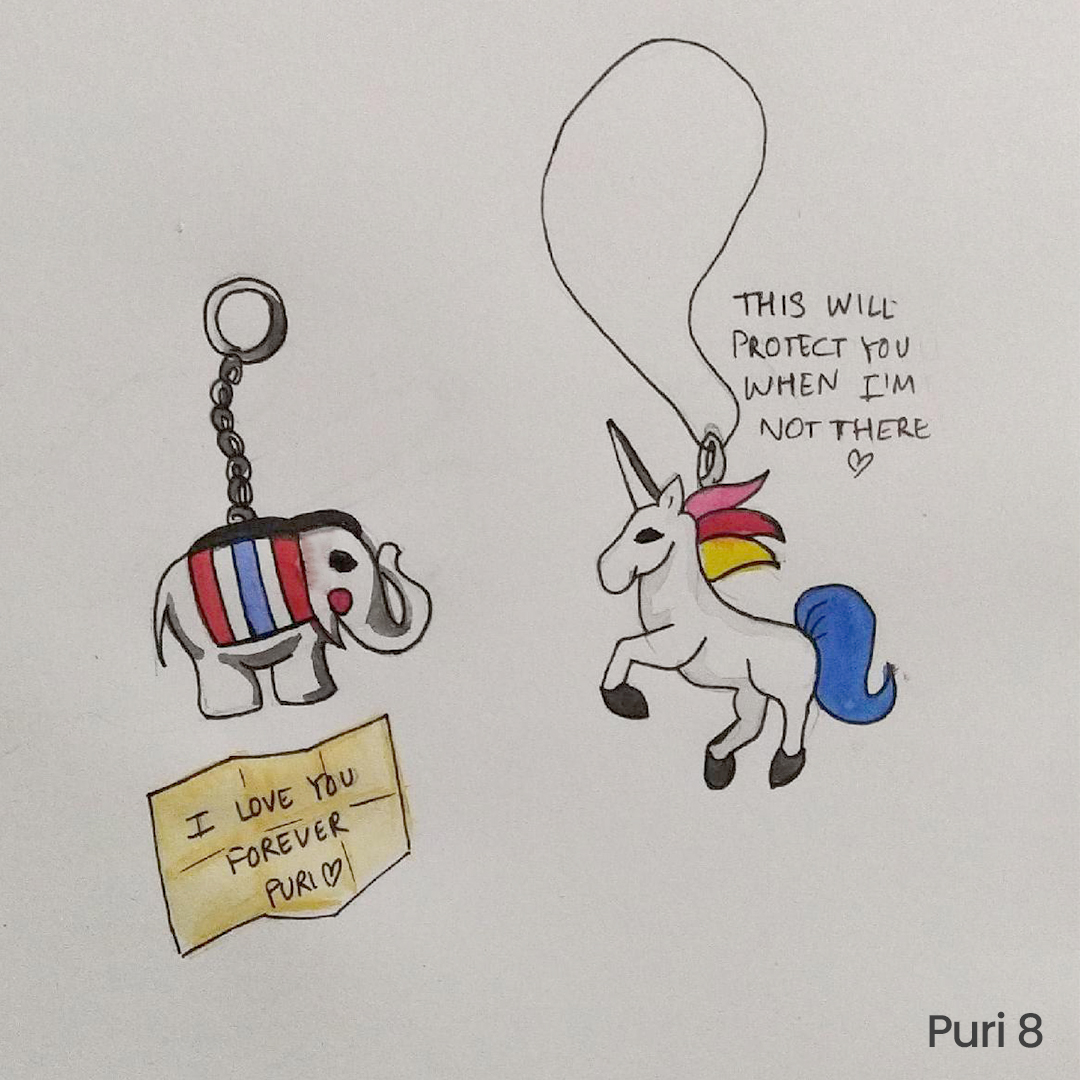 THIS WILL
PROTECT YOU
WHEN I'M
NOT THERE
♡
I LOVE YOU
FOREVER
PURI ♡
Puri 8